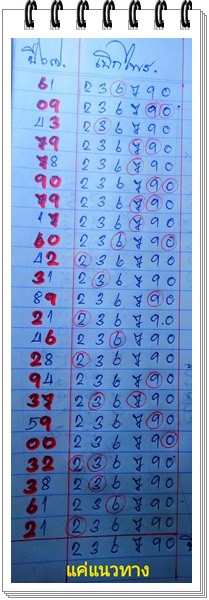 ปี๖๗. เบิกไพร.
61 236790
09 236790
43 236790
79 236790
78 236790
90 236790
79 236790
17 236790
60 236790
42 236790
31 236790
89 236790
21 236790
46 236790
28 236790
94 236790
37 236790
59 236790
00 236790
32 236790
38 236790
61 236790
21 236790
236790
แค่แนวทาง